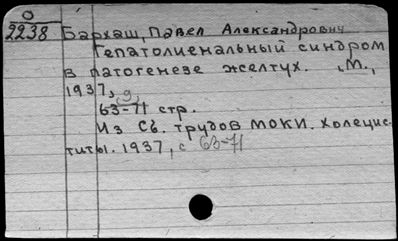 О
2238 Бархаш, Павел Александрович
Гепатолиенальный синдром
в патогенезе желтух. М.,
1937, 9,
63-71 стр.
Из Сб. трудов МОКИ. Холецис-
титы. 1937, с 63-71